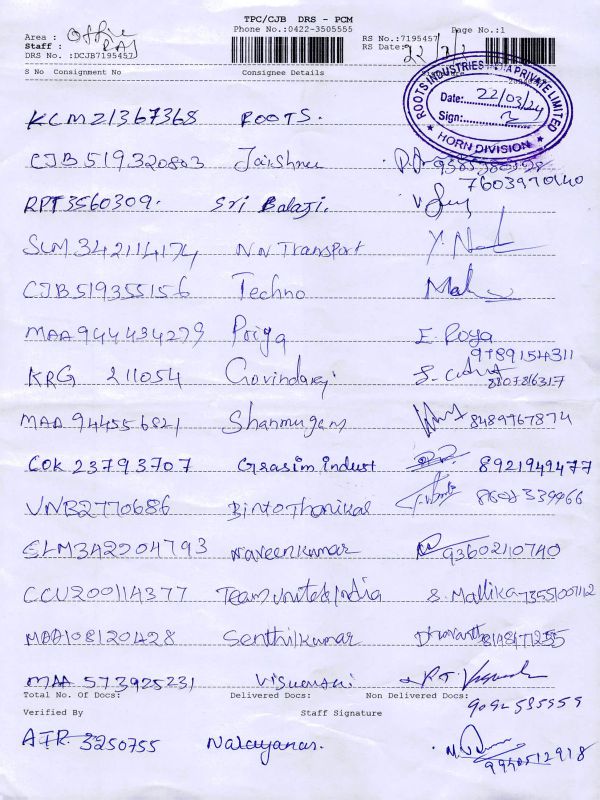 TPC/CJB DRS - PCM
Area : Office Phone No.:0422-3505555 RS No.:7195457 Page No.:1
Staff : RAJ RS Date: 22/3/
DRS No. :DCJB7195457
S No Consignment No Consignee Details
ROOTS INDUSTRIES INDIA PRIVATE LIMITED
Date: 22/03/24
Sign:
★ HORN DIVISION ★
KCM21367368 ROOTS.
CJB519320803 Jaishree
7603970140
RPT3560309. Sri Balaji.
SLM342114174 N.N Transport
CJB519355156 Techno
MAA944434279 Priya E. Roya
9789154311
KRG 211054 Govindaraj 8107816317
MAA 944556821 Shanmugam 8489767874
COK 23793707 Grasim.indust 8921949477
VNB2770686 Binto Thanikal
ELM3A2204793 naveenkumar 9360210740
CCU200114377 Team united India S. Mallika 73551001112
MAA108120428 Senthilkumar
MAA 573925231
Total No. Of Docs: Delivered Docs: Non Delivered Docs:
9092585959
Verified By Staff Signature
AIR. 3250755 Narayanan.
9990512918